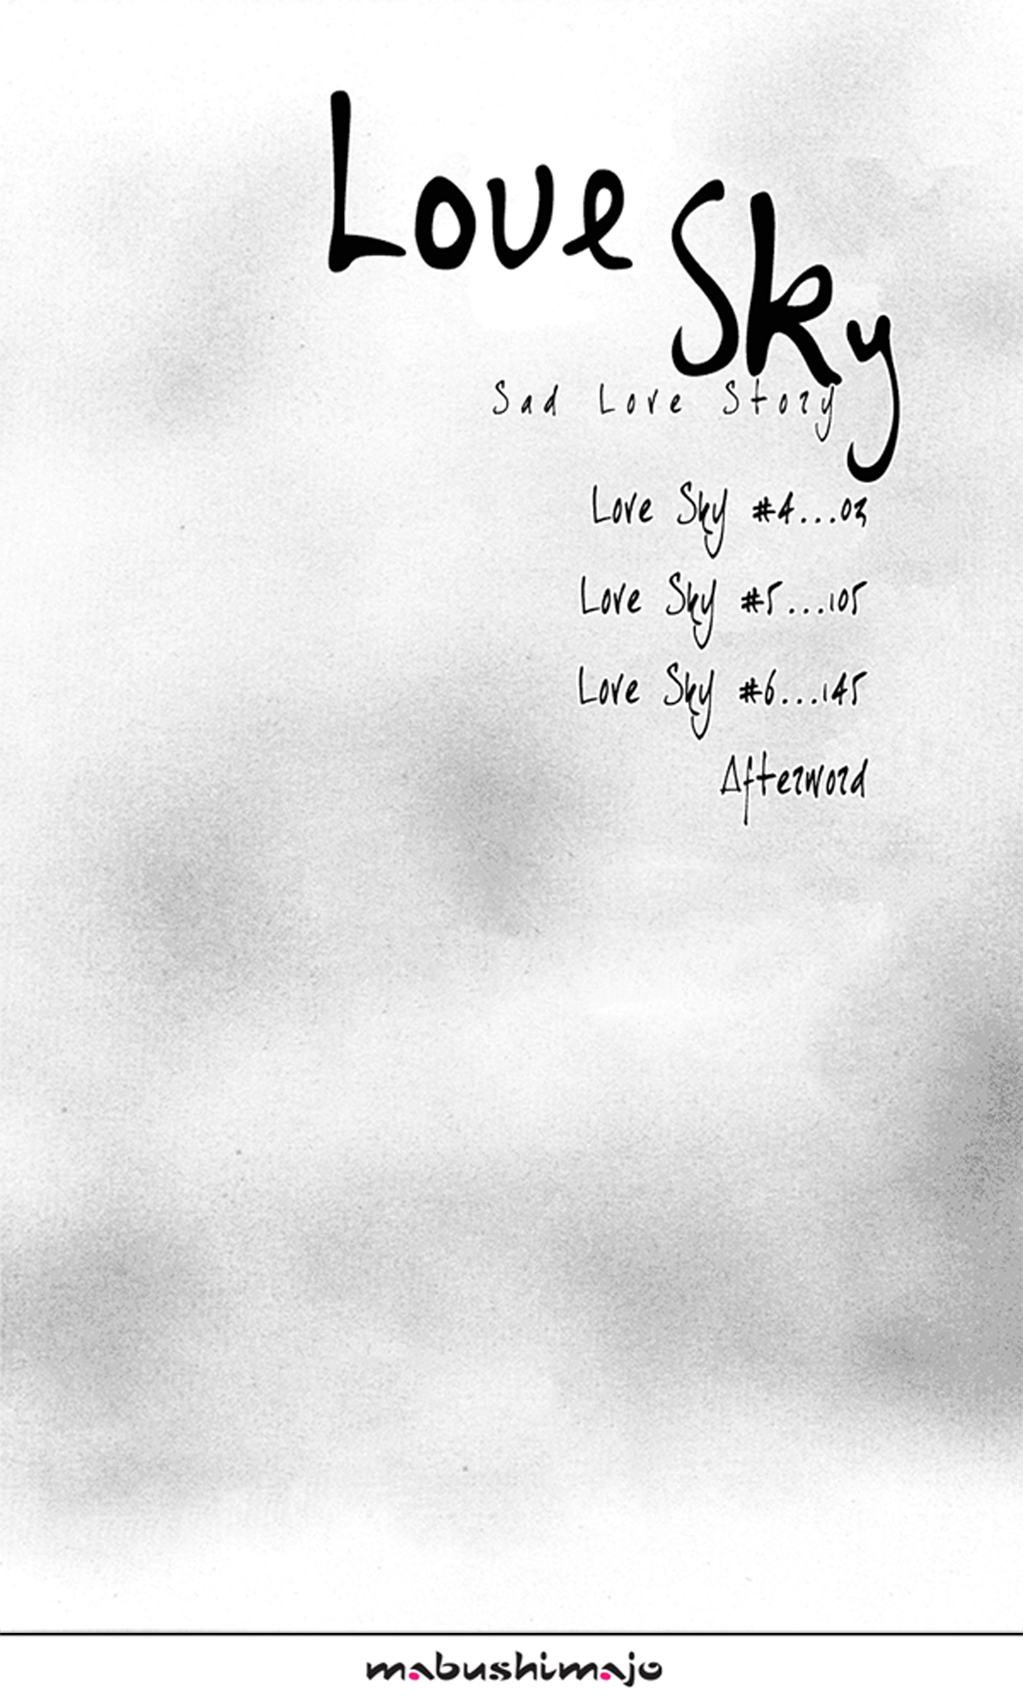 Love Sky
Sad Love Story
Love Sky #4...03
Love Sky #5...105
Love Sky #6...145
Afterword
mabushimajo